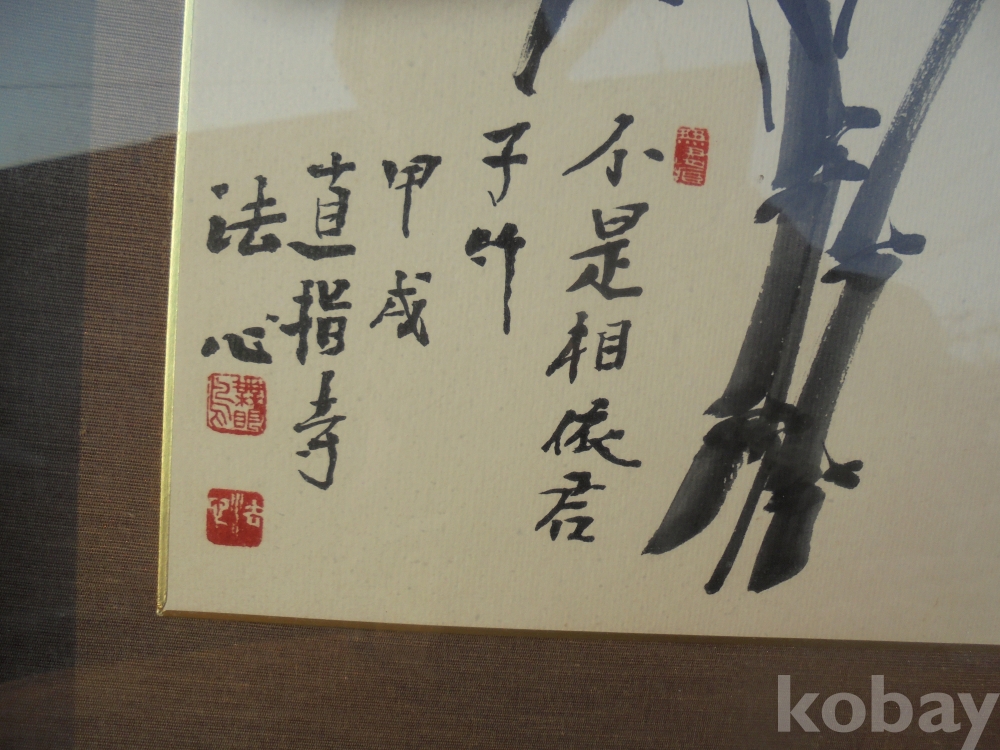 不是相依君
子竹
甲戌
直指寺
法心
法心
kobay